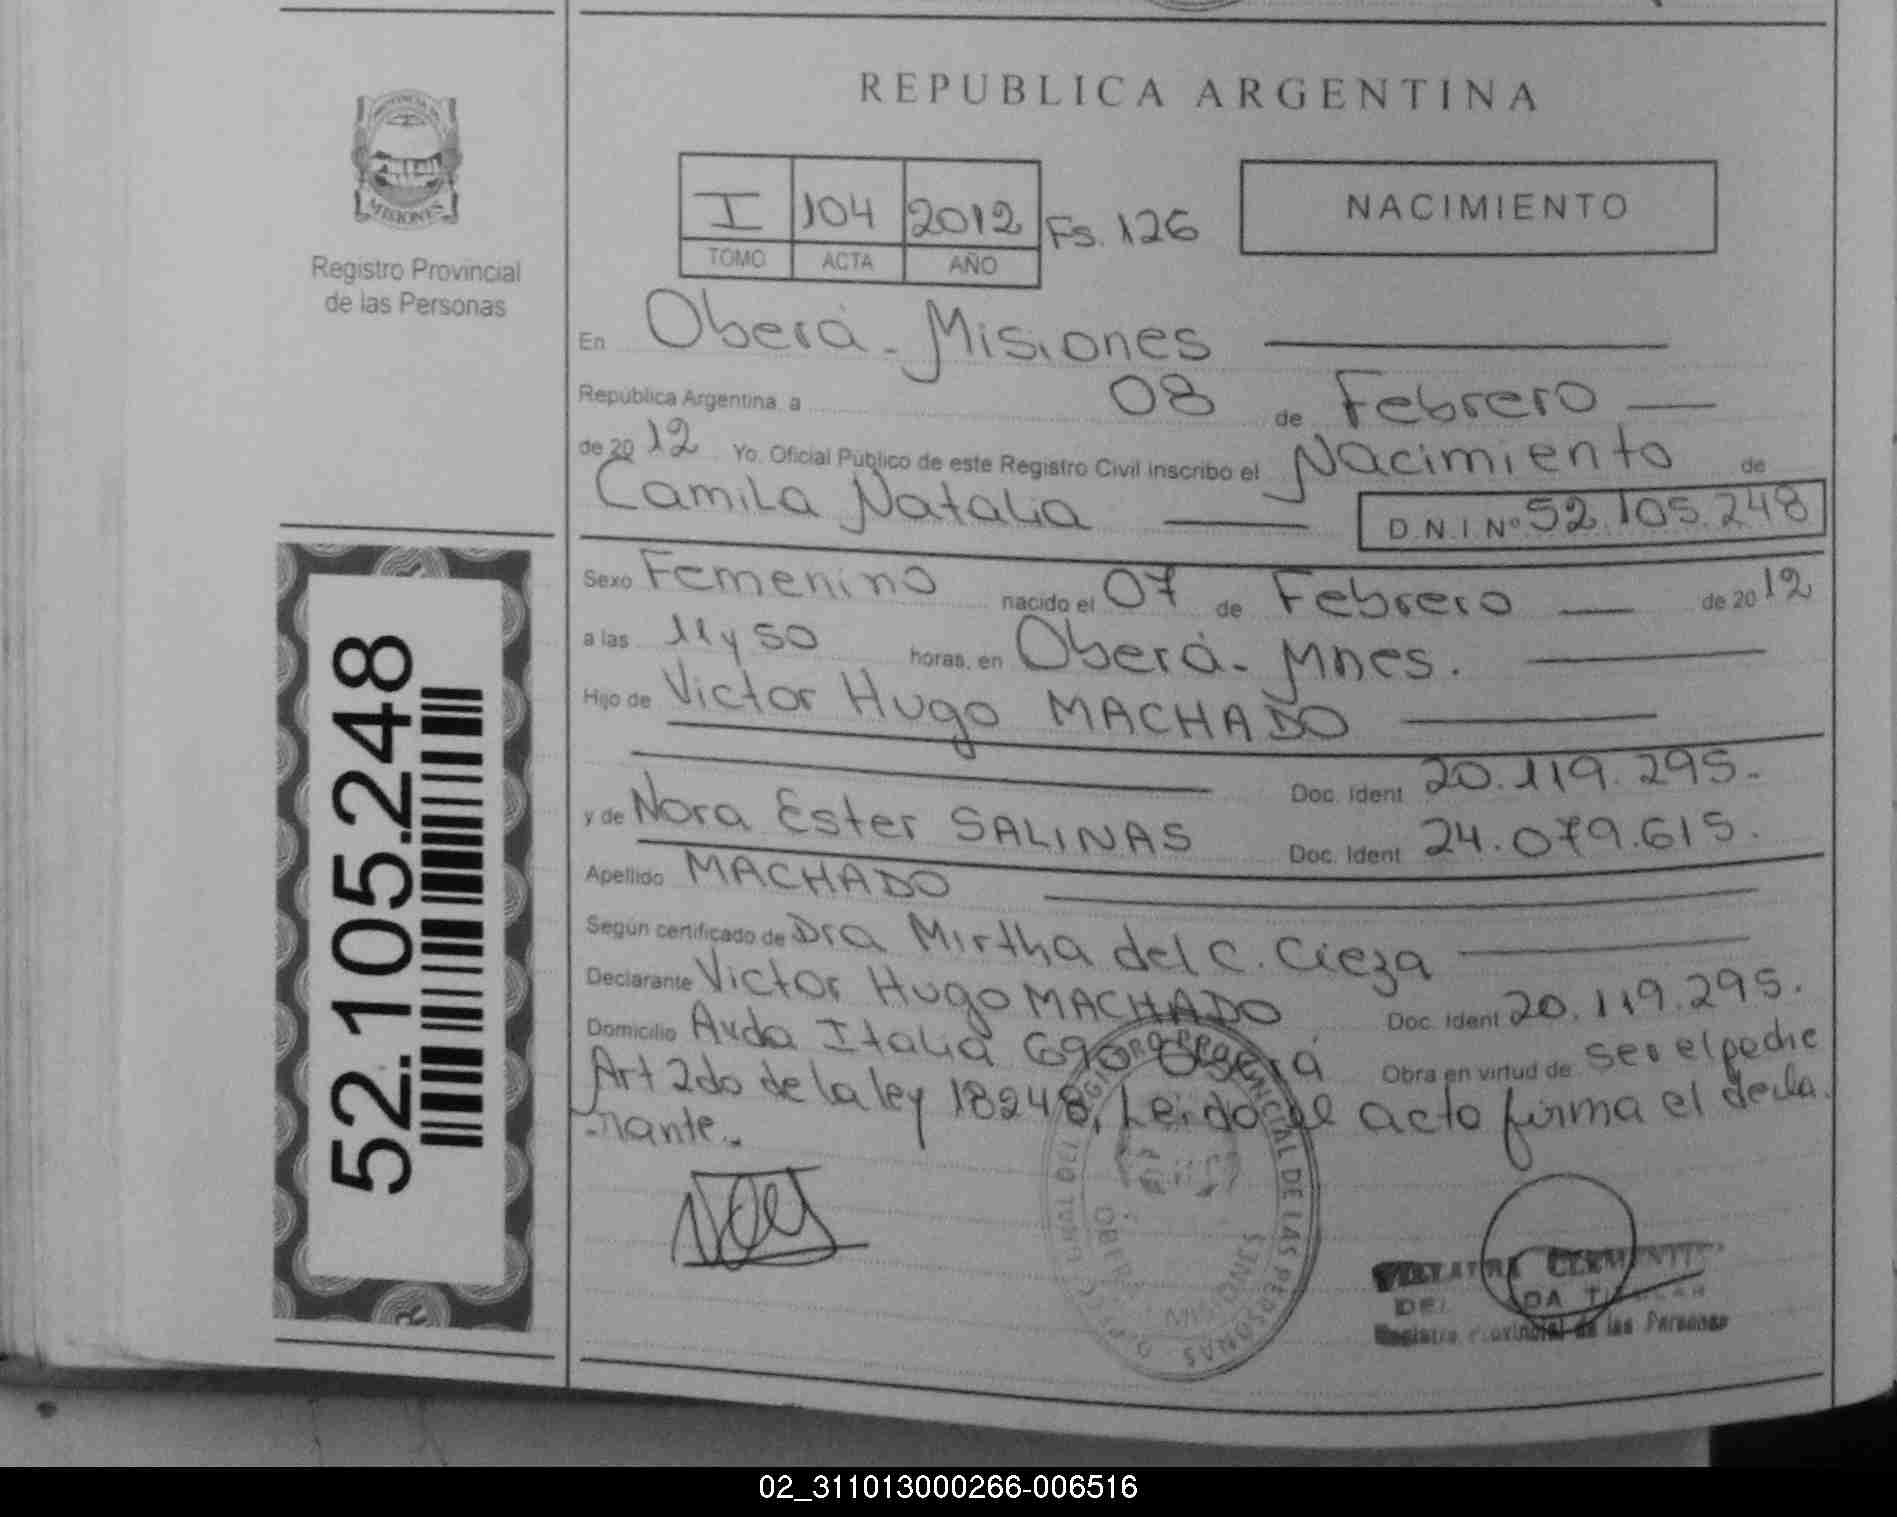 REPUBLICA ARGENTINA
PROVINCIA
MISIONES
Registro Provincial
de las Personas
I 104 2012 Fs. 126
TOMO ACTA AÑO
NACIMIENTO
En Oberá - Misiones
República Argentina, a 08 de Febrero
de 20 12 Yo, Oficial Público de este Registro Civil inscribo el Nacimiento de
Camila Natalia D.N.I. Nº 52.105.248
Sexo Femenino nacido el 07 de Febrero de 20 12
a las 11 y 50 horas, en Oberá - Mnes.
Hijo de Victor Hugo MACHADO
Doc. Ident 20.119.295.
y de Nora Ester SALINAS Doc. Ident 24.079.615.
Apellido MACHADO
Según certificado de Dra Mirtha del C. Cieza
Declarante Victor Hugo MACHADO Doc. Ident 20.119.295.
Domicilio Avda Italia 690 Oberá Obra en virtud de ser el padre
Art 2do de la ley 18248. Leido el acto firma el decla
-rante.
52.105.248
REGISTRO PROVINCIAL DE LAS PERSONAS
OBERA MISIONES
Registro Provincial de las Personas
02_311013000266-006516